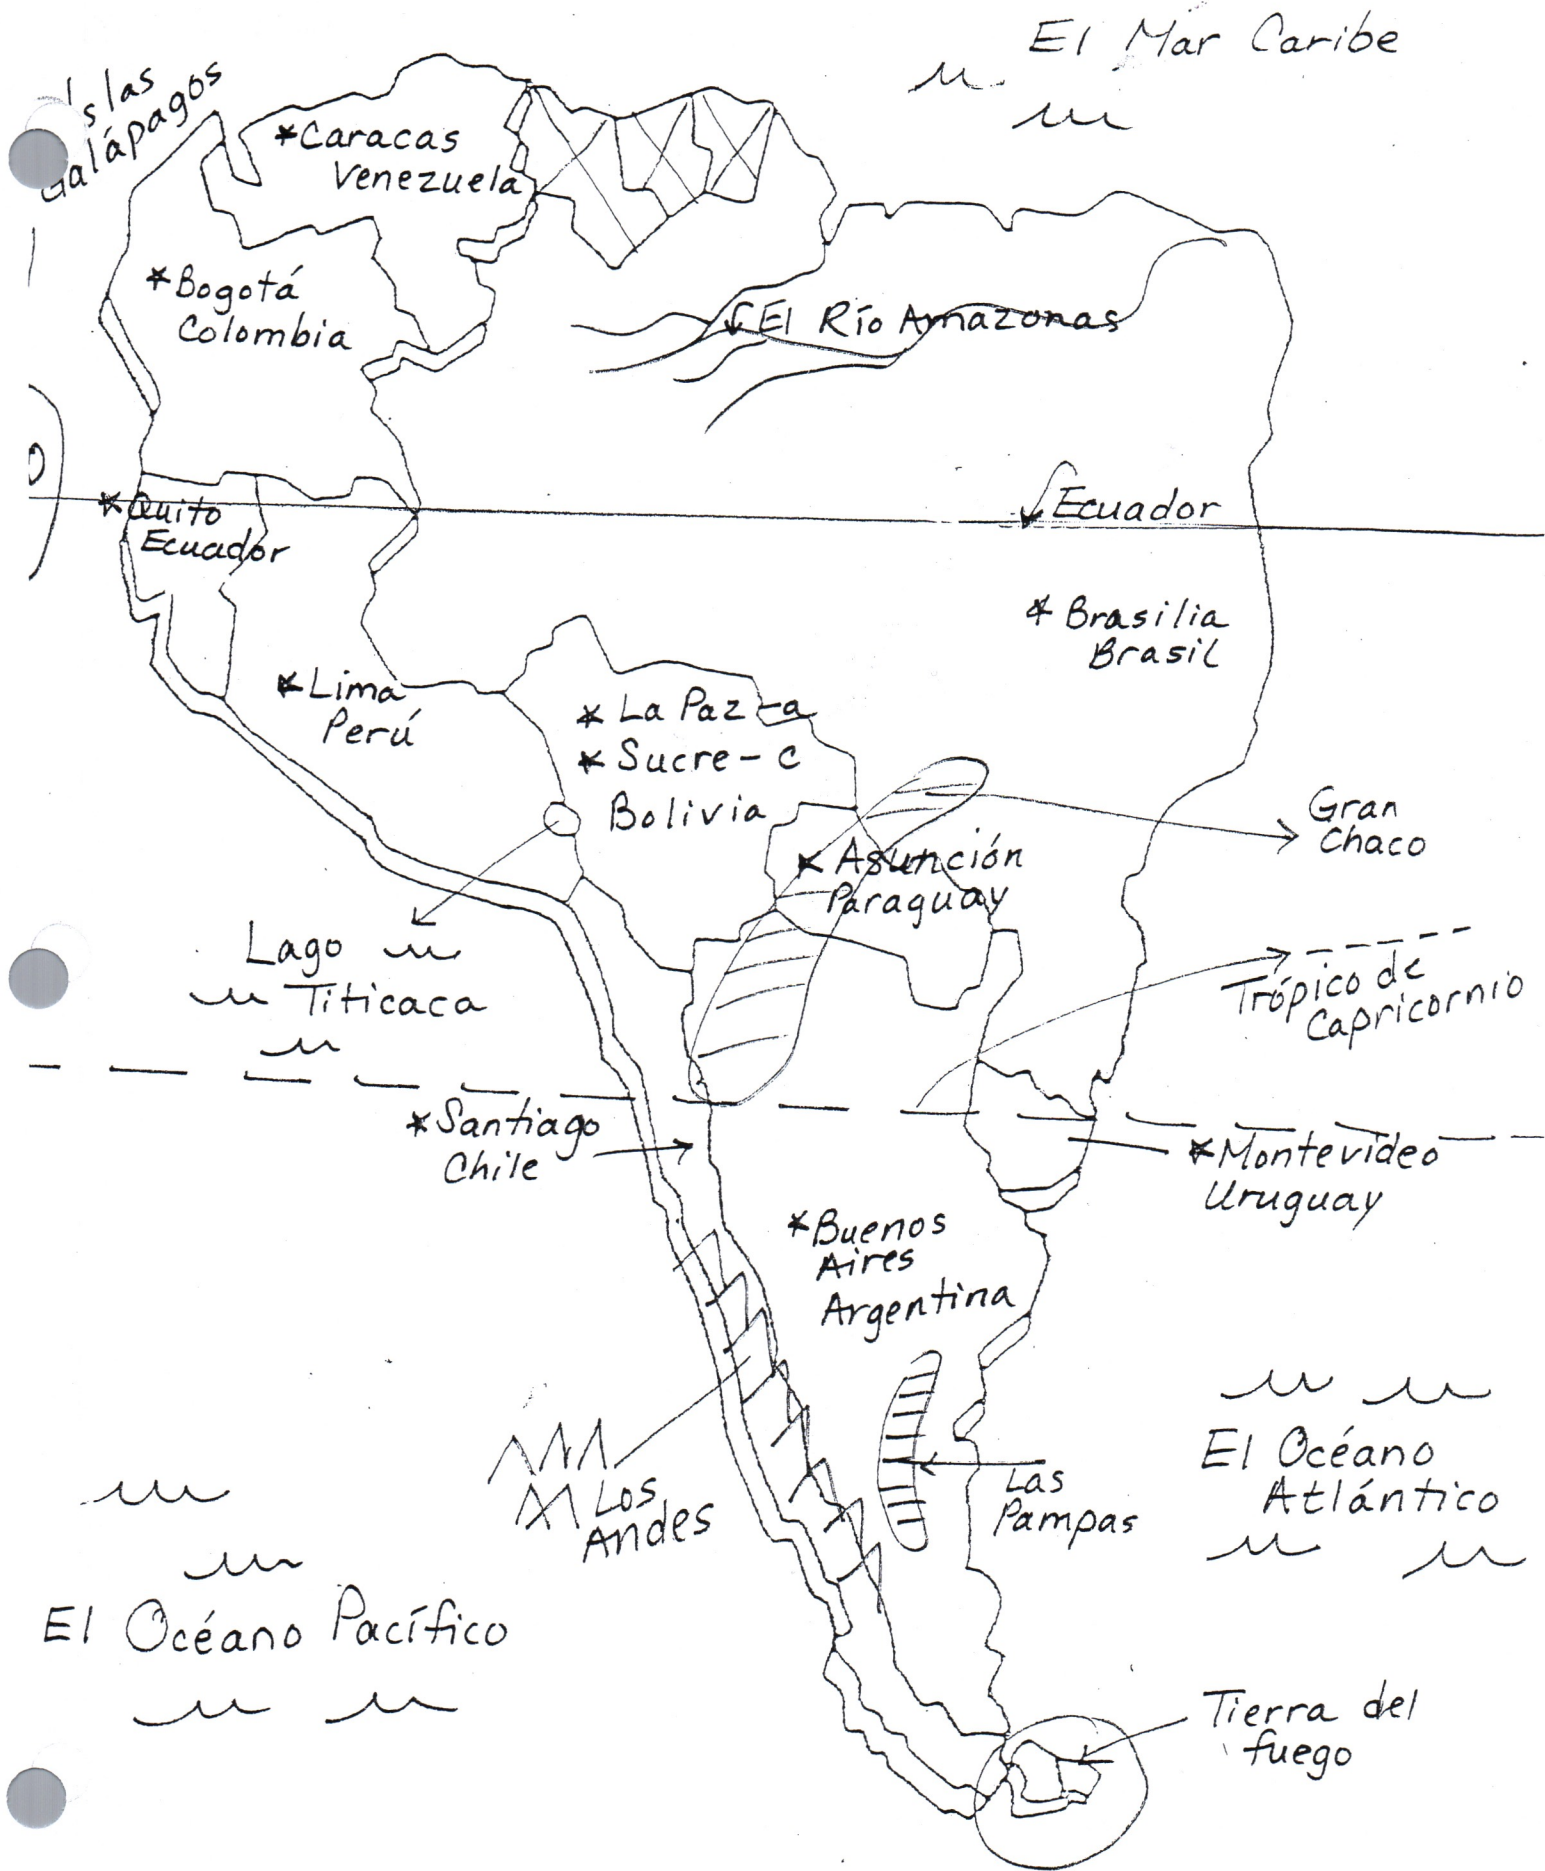 El Mar Caribe
Islas
Galápagos
*Caracas
Venezuela
*Bogotá
Colombia
El Río Amazonas
*Quito
Ecuador
Ecuador
*Brasilia
Brasil
*Lima
Perú
*La Paz-a
*Sucre-c
Bolivia
Gran
Chaco
*Asunción
Paraguay
Lago
Titicaca
Trópico de
Capricornio
*Santiago
Chile
*Montevideo
Uruguay
*Buenos
Aires
Argentina
Los
Andes
Las
Pampas
El Océano
Atlántico
El Océano Pacífico
Tierra del
fuego